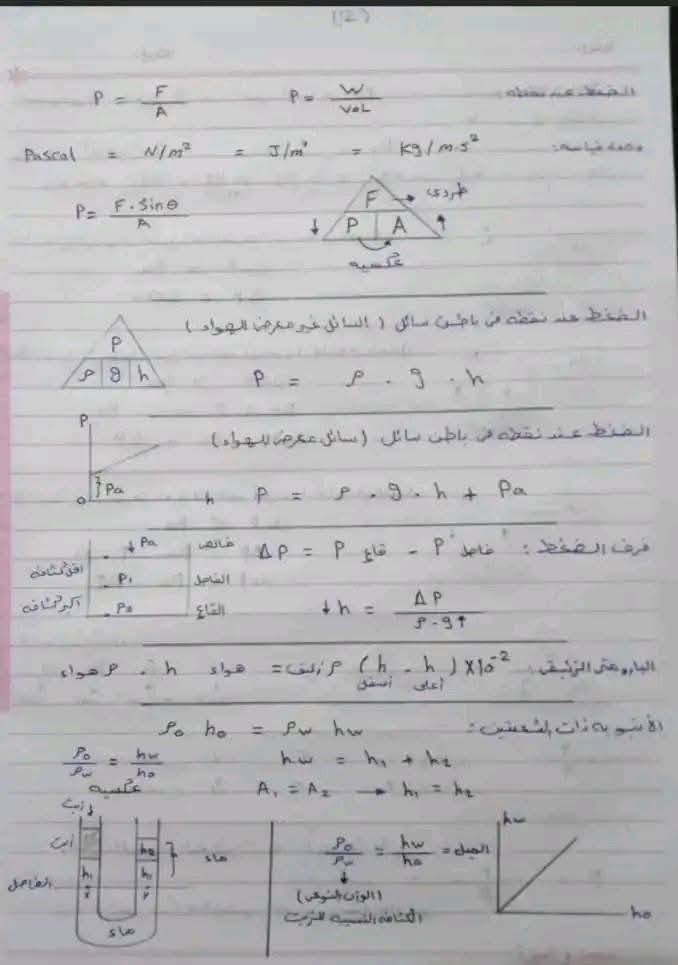 (12)
الضغط عند نقطة: P = F / A    P = W / VOL
وحدة قياسه: Pascal = N/m² = J/m³ = Kg/m.s²
P = F . Sinθ / A
F طردى
P A
عكسيه
الضغط عند نقطه فى باطن سائل (السائل غير معرض للهواء)
P
ρ g h
P = ρ . g . h
الضغط عند نقطه فى باطن سائل (سائل معرض للهواء)
P
Pa
0 h
P = ρ . g . h + Pa
فرق الضغط: ΔP = P قاع - P فاصل
Pa خالص
اقل كثافه P₁ الفاصل
اكبر كثافه P₂ القاع
↓h = ΔP / ρ . g↑
البارومتر الزئبقى: ρ زئبق (h أسفل - h أعلى) X10⁻² = ρ هواء . h هواء
الأنبوبه ذات الشعبتين: ρo ho = ρw hw
ρo / ρw = hw / ho
عكسيه
hw = h₁ + h₂
A₁ = A₂ → h₁ = h₂
زيت
ماء
h₁
الفاصل
x y
ماء
ρo / ρw = hw / ho = الميل
(الوزن النوعى)
الكثافه النسبيه للزيت
hw
ho